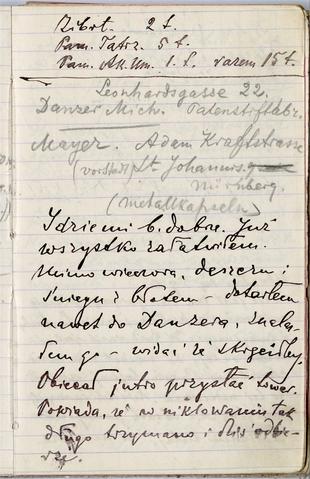 Zibrt. 2 f.
Pam. Tatrz. 5 f.
Pam. Ak. Um. 1. f. razem 15 f.
Leonhardsgasse 22.
Danzer Mich. Patentstiftfabr.
Mayer. Adam Kraftstrasse
(vorstadt St. Johannis.
Nürnberg.
(Metallkapseln)
Idzie mi b. dobrze. Już
wszystko załatwiłem.
Mimo wieczora, deszczu i
śniegu z błotem – dotarłem
nawet do Danzera, znala-
złem go – widać że skrzętny.
Obiecał jutro przysłać towar.
Powiada, że w niklowaniu tak
długo trzymano i dziś odbie-
rze.